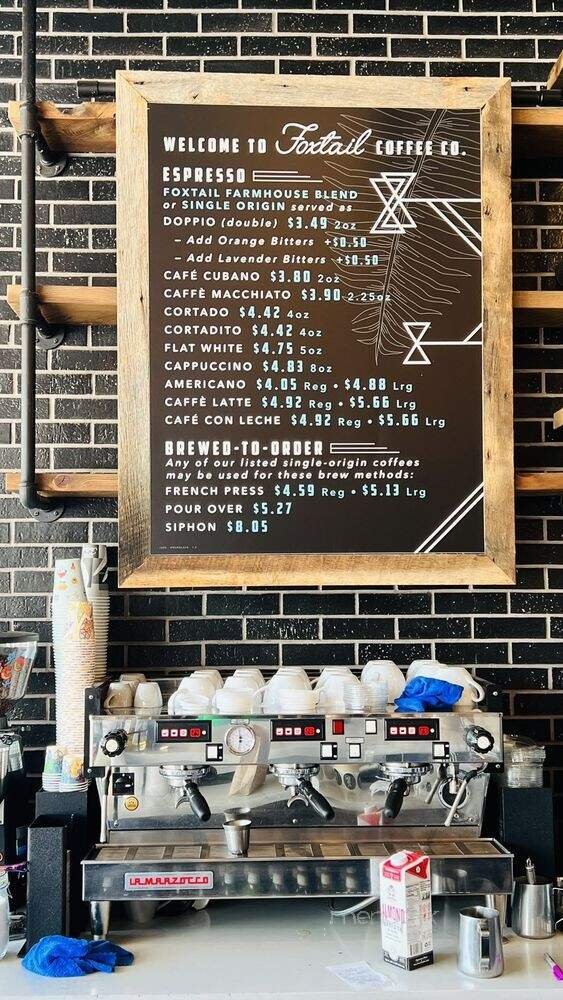 WELCOME TO Foxtail COFFEE CO.
ESPRESSO
FOXTAIL FARMHOUSE BLEND
or SINGLE ORIGIN served as
DOPPIO (double) $3.49 2oz
– Add Orange Bitters +$0.50
– Add Lavender Bitters +$0.50
CAFÉ CUBANO $3.80 2oz
CAFFÈ MACCHIATO $3.90 2.25oz
CORTADO $4.42 4oz
CORTADITO $4.42 4oz
FLAT WHITE $4.75 5oz
CAPPUCCINO $4.83 8oz
AMERICANO $4.05 Reg • $4.88 Lrg
CAFFÈ LATTE $4.92 Reg • $5.66 Lrg
CAFÉ CON LECHE $4.92 Reg • $5.66 Lrg
BREWED-TO-ORDER
Any of our listed single-origin coffees
may be used for these brew methods:
FRENCH PRESS $4.59 Reg • $5.13 Lrg
POUR OVER $5.27
SIPHON $8.05
LA MARZOCCO
ALMOND